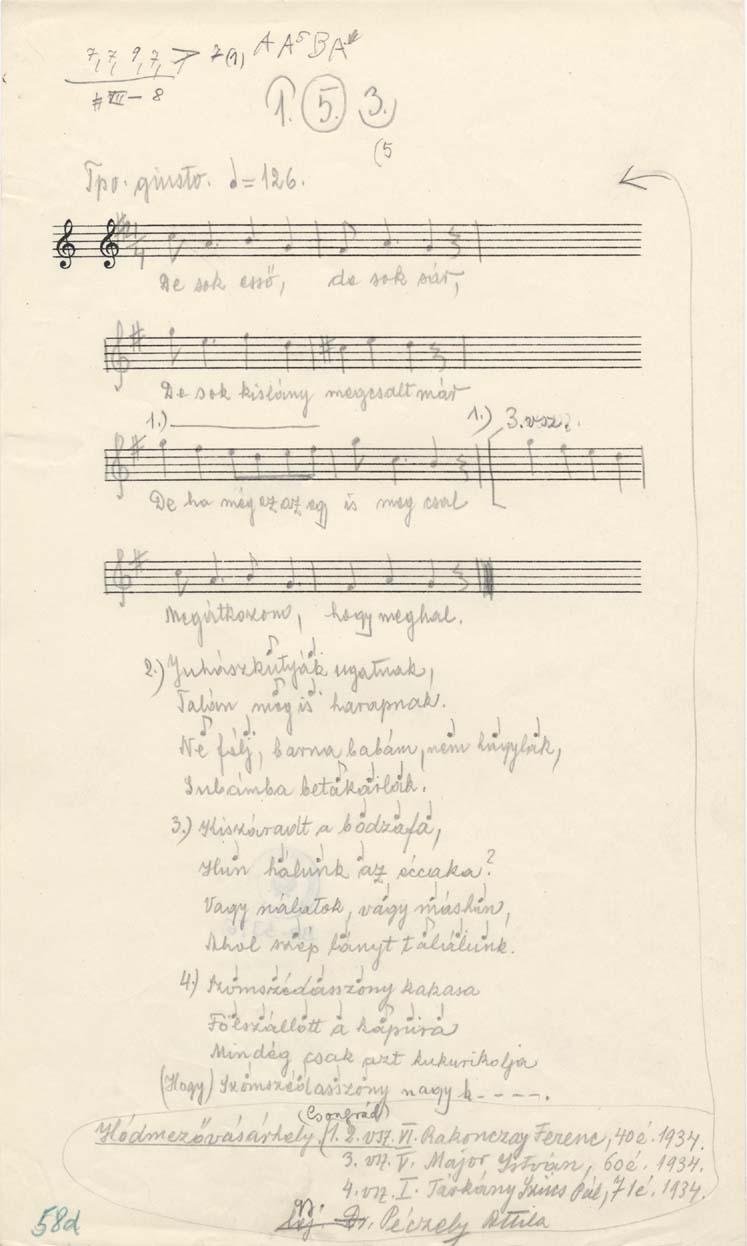 7, 7, 9, 7, > 7(1) A A⁵ B A
#VII – 8
1. 5. 3.
(5
Tpo. giusto. ♩=126.
2/4
De sok eső, de sok sár,
De sok kislány megcsalt már
1.) 1.) 3. vsz.:
De ha még ez az egy is meg csal
Megátkozom, hogy meghal.
2.) Juhászkutyák ugatnak,
Talán meg is harapnak.
Ne félj, barna babám, nem hagylak,
Subámba betakarlak.
3.) Kiszáradt a bodzafa,
Hun hálunk az éccaka?
Vagy nálatok, vagy máshun,
Ahol szép lányt találunk.
4.) Szomszédasszony kakasa
Fölszállott a kapura
Mindég csak azt kukurikolja
(Hogy) Szomszédasszony nagy k-----.
(Csongrád)
Hódmezővásárhely, (1. 2. vsz. VI. Rakonczay Ferenc, 40 é. 1934.
3. vsz. V. Major István, 60 é. 1934.
4. vsz. I. Tárkány Szücs Pál, 71 é. 1934.
gy. Dr. Péczely Attila
58d